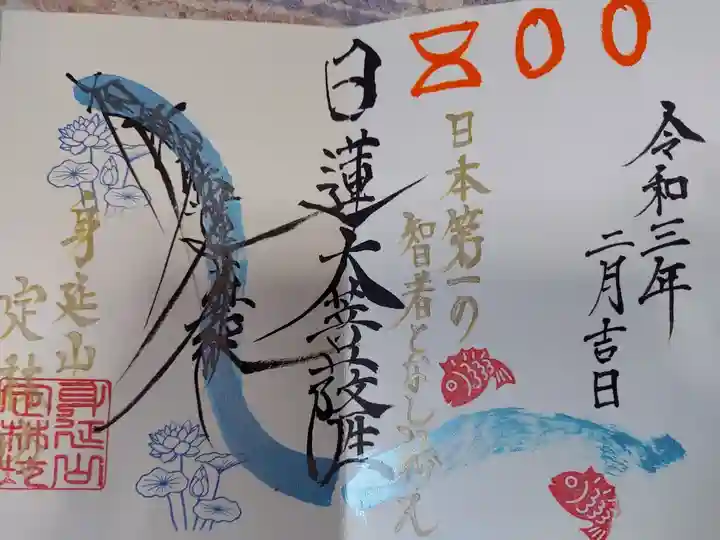 800
令和三年
二月吉日
日本第一の
智者となし
日蓮大菩薩
南無妙法蓮華経
身延山
定林坊
身延山
定林坊